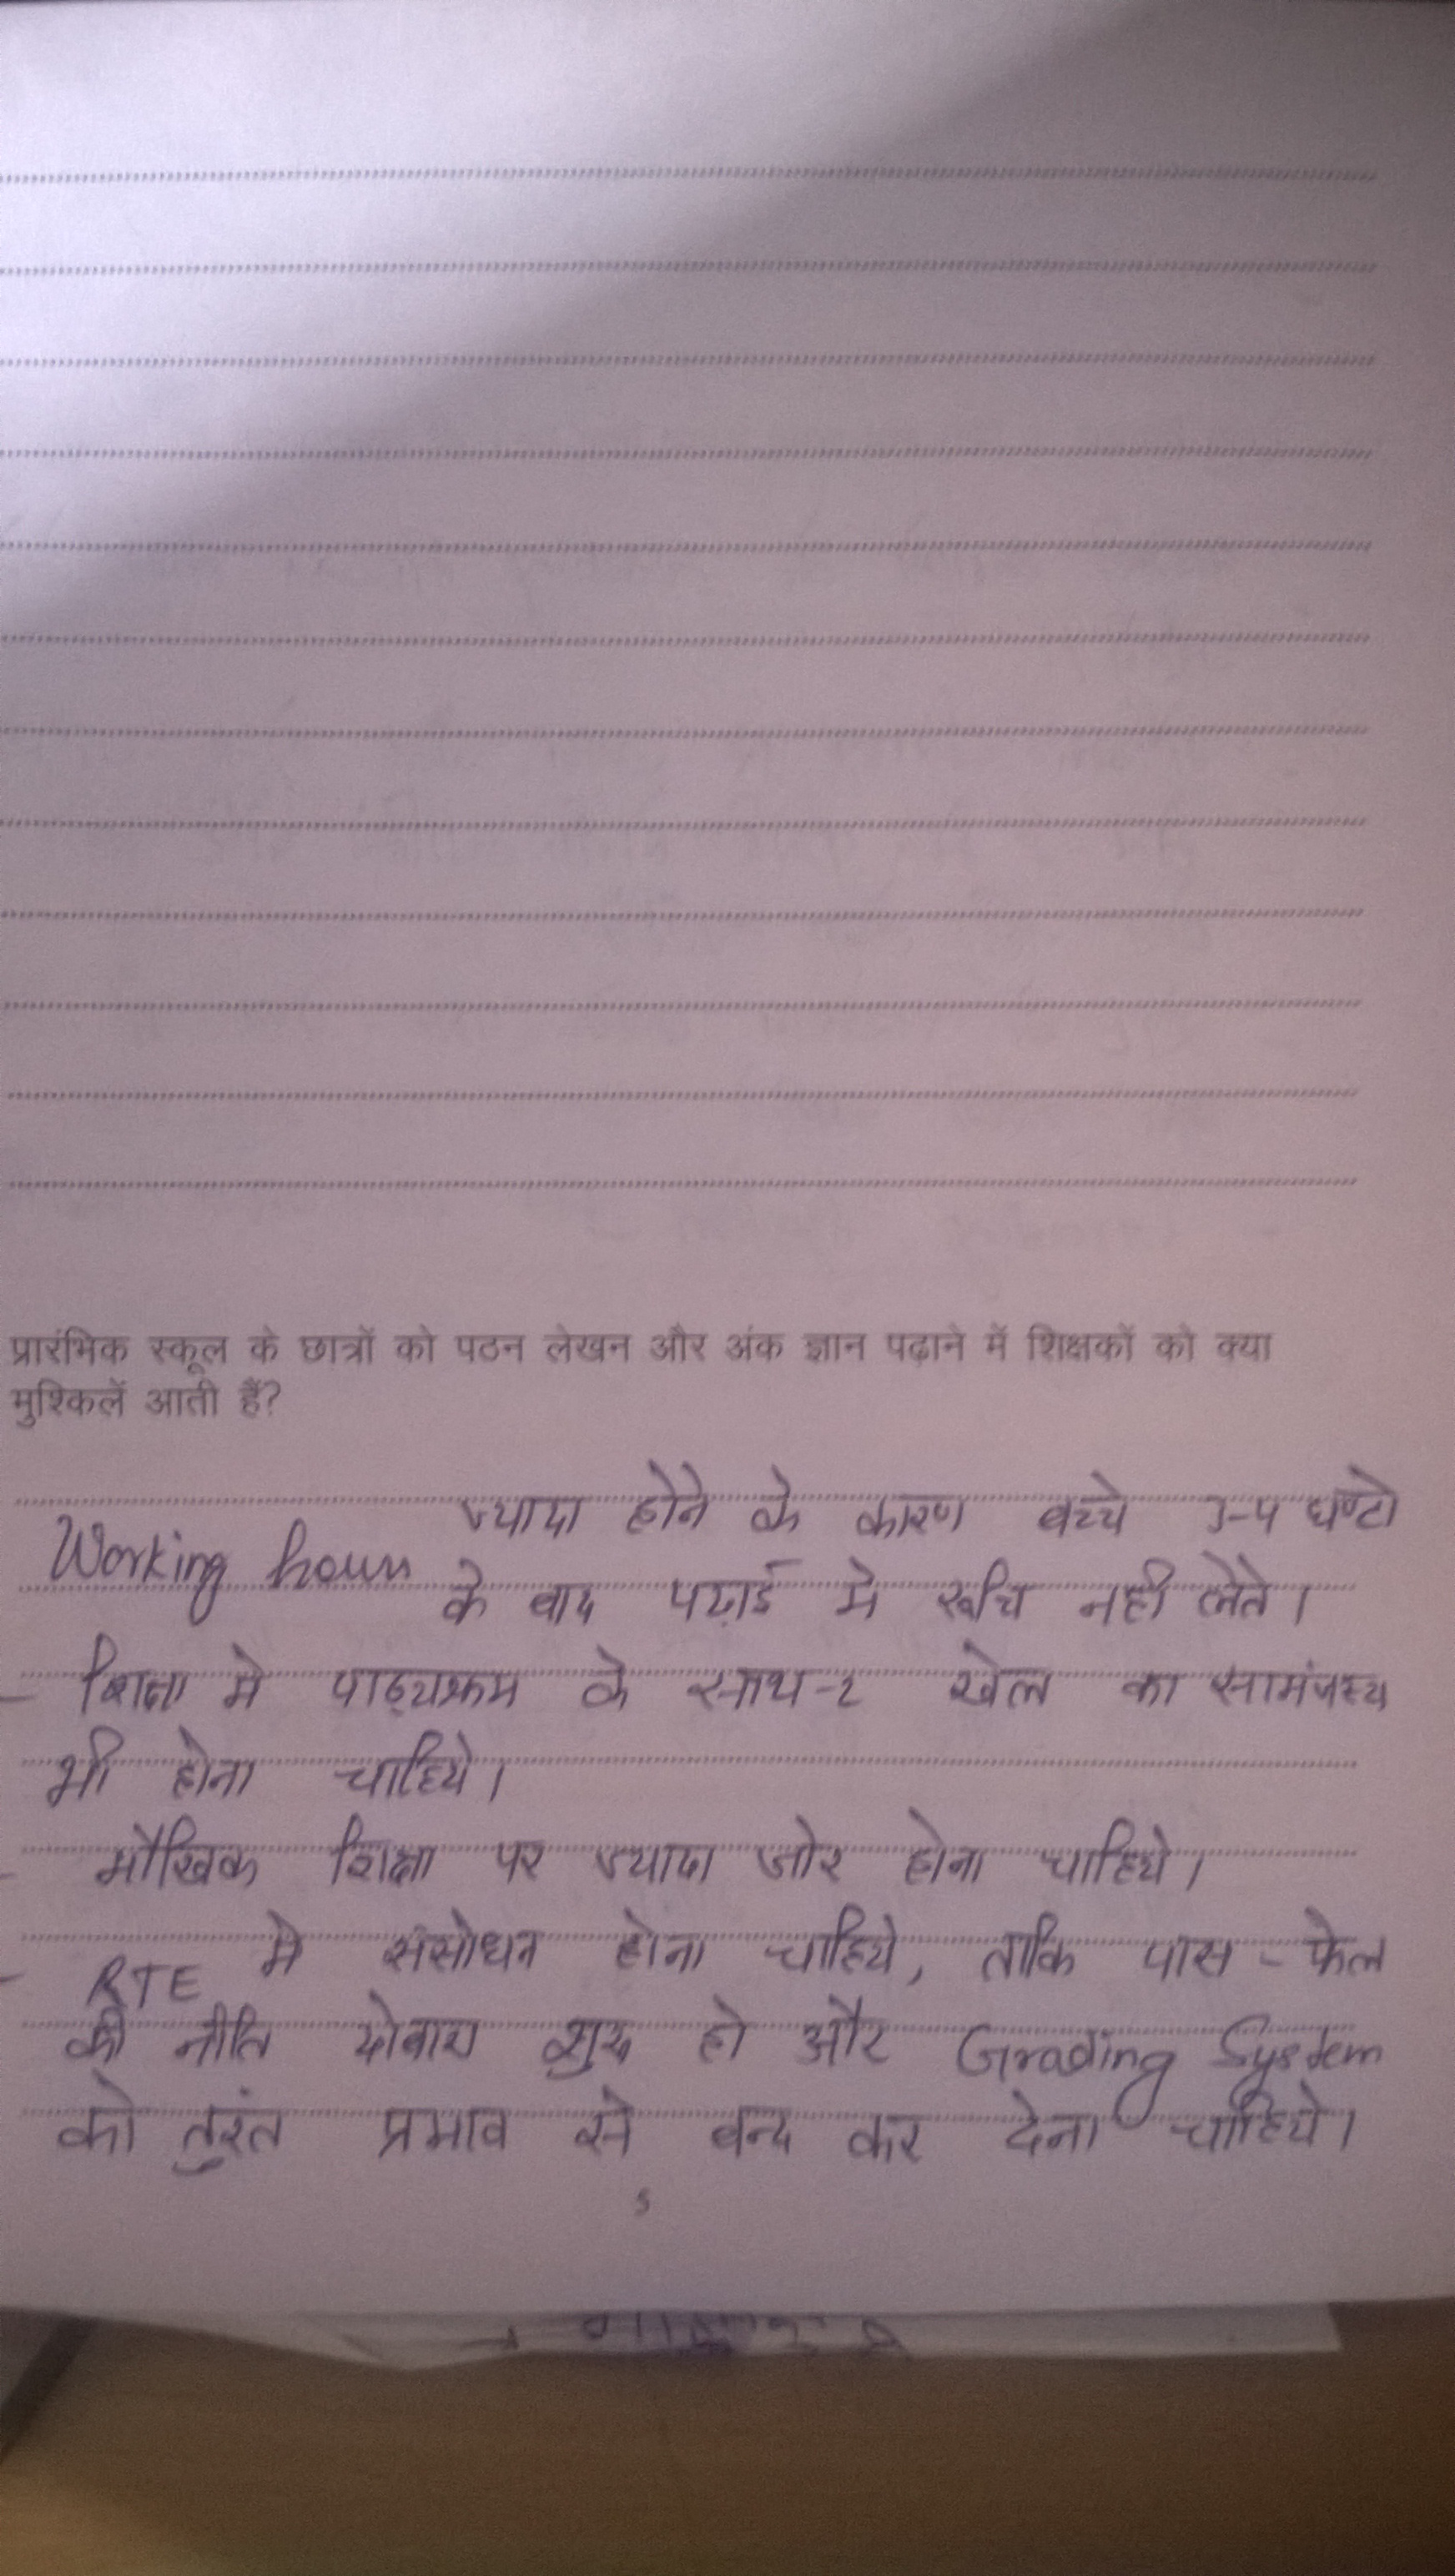 प्रारंभिक स्कूल के छात्रों को पठन लेखन और अंक ज्ञान पढ़ाने में शिक्षकों को क्या
मुश्किलें आती हैं?
Working hours ज्यादा होने के कारण बच्चे 3-4 घण्टो
के बाद पढाई मे रूचि नही लेते।
- शिक्षा मे पाठ्यक्रम के साथ-2 खेल का सामंजस्य
भी होना चाहिये।
- मौखिक शिक्षा पर ज्यादा जोर होना चाहिये।
- RTE मे संसोधन होना चाहिये, ताकि पास - फेल
की नीति दोबारा शुरू हो और Grading System
को तुरंत प्रभाव से बन्द कर देना चाहिये।
5